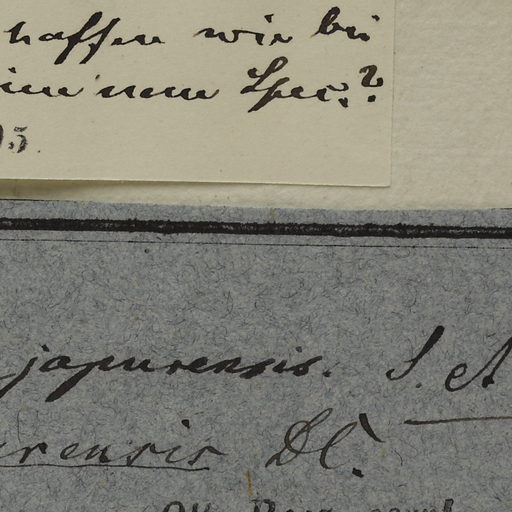 haffen wie bei
eine neue Spec.?
95.
japurensis. S. A
urensis DC.